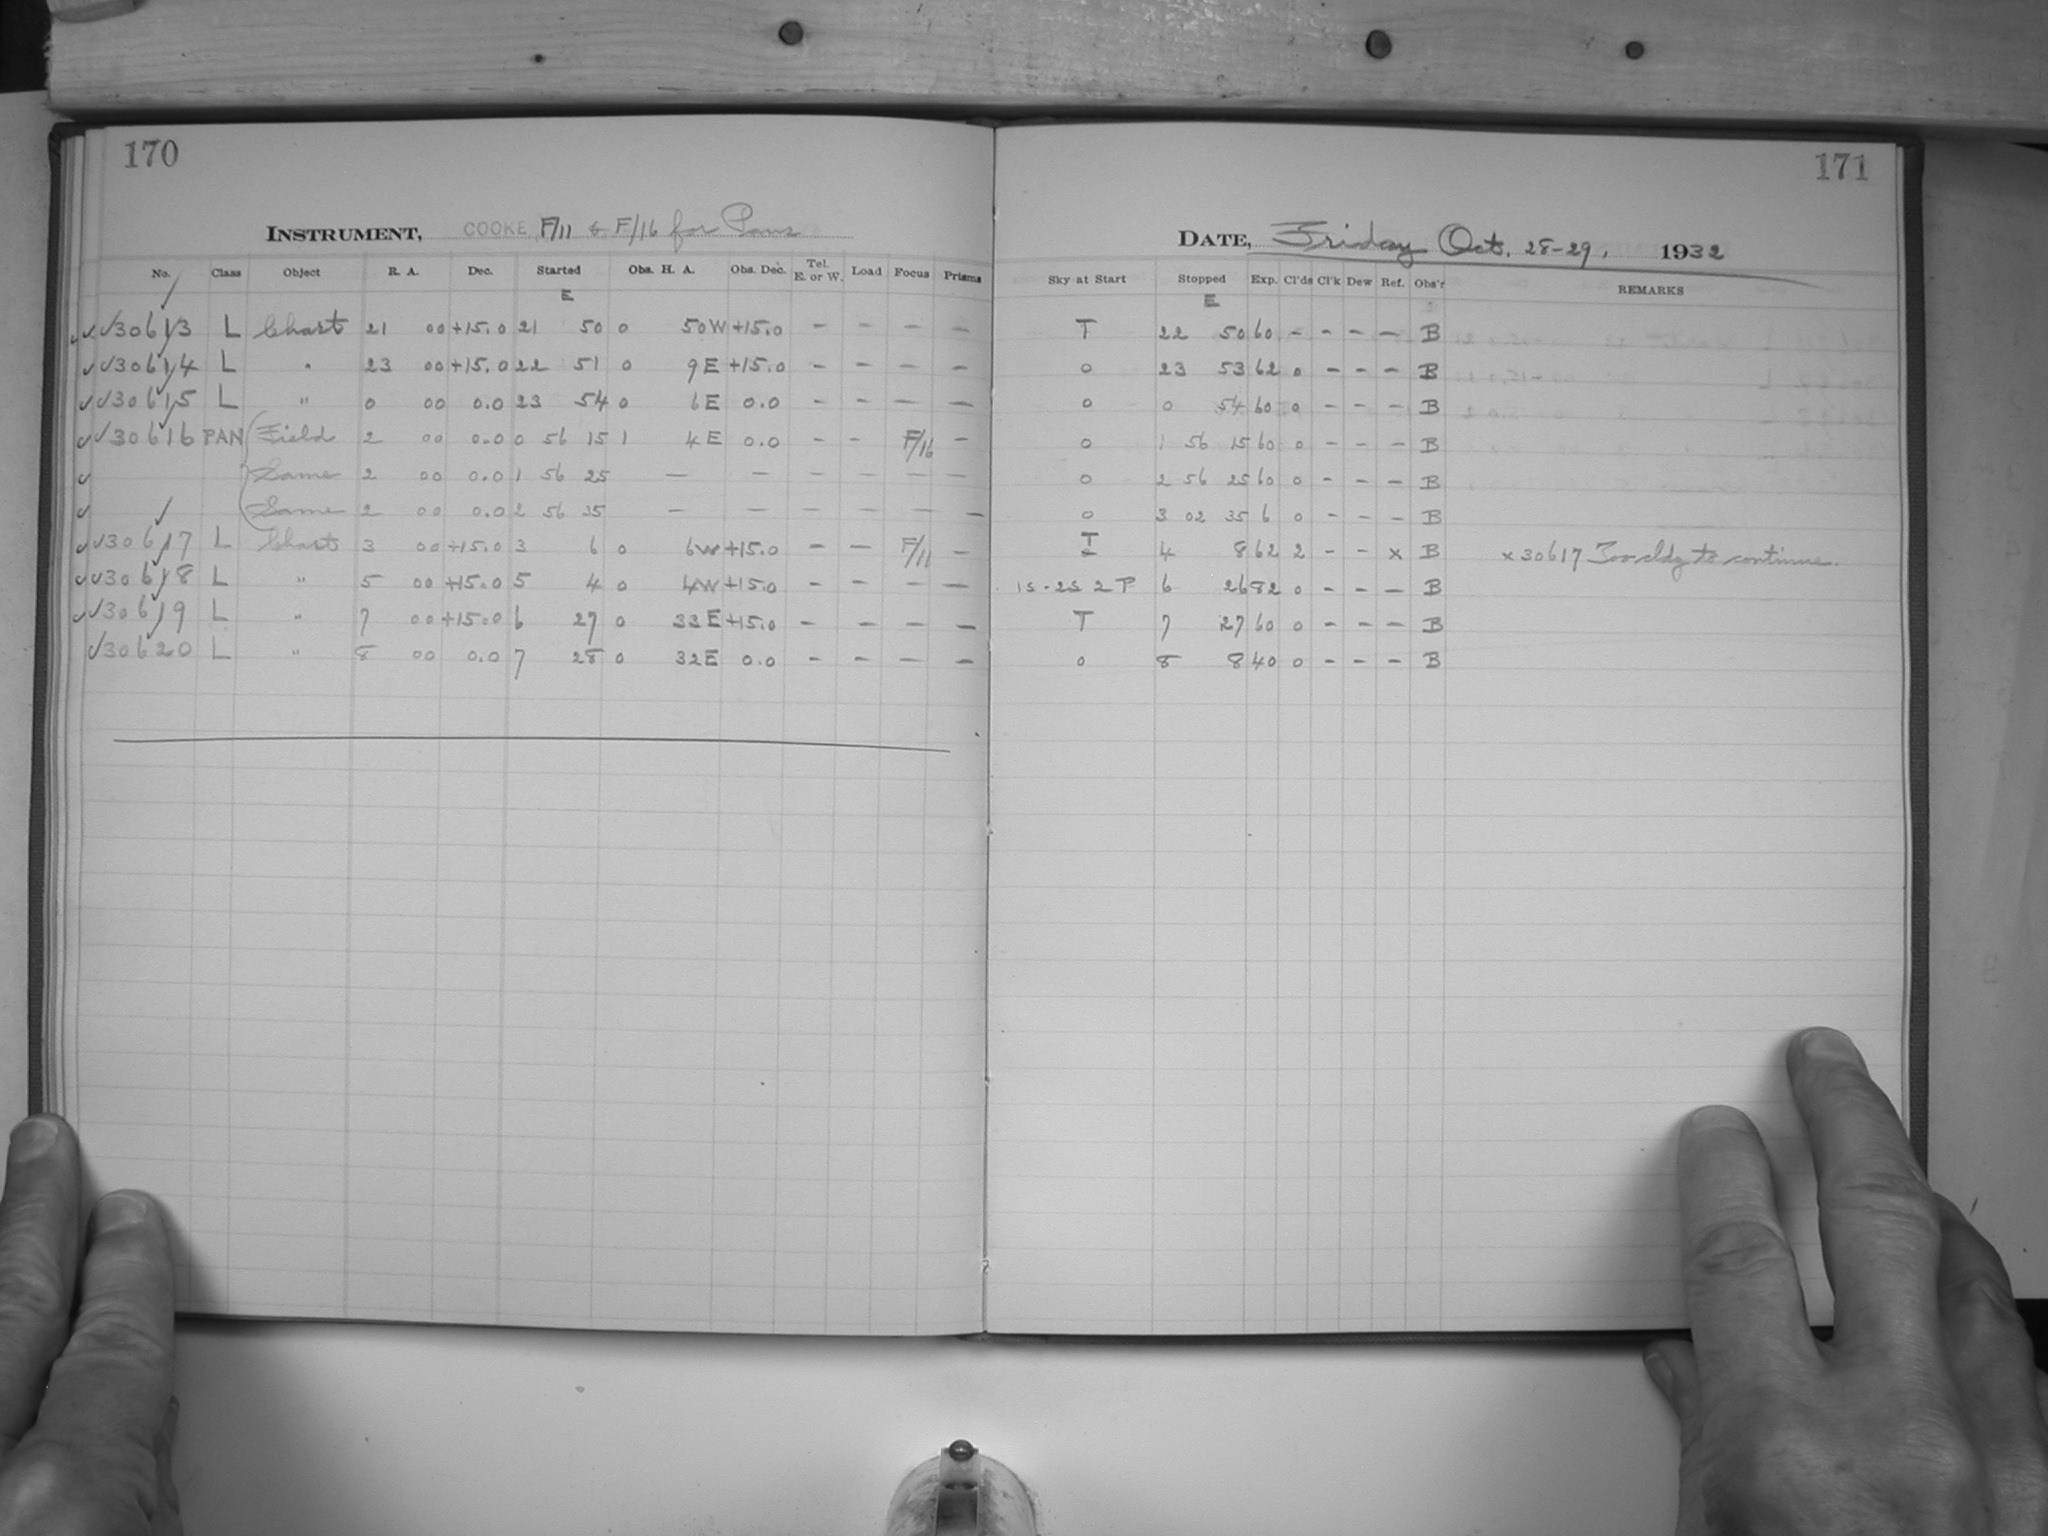 170
INSTRUMENT, COOKE F/11 & F/16 for Pans
No. Class Object R. A. Dec. Started Obs. H. A. Obs. Dec. Tel. E. or W. Load Focus Prisms
E
✓✓30613 L Chart 21 00 +15.0 21 50 0 50 W +15.0 - - - -
✓✓30614 L " 23 00 +15.0 22 51 0 9 E +15.0 - - - -
✓✓30615 L " 0 00 0.0 23 54 0 6 E 0.0 - - - -
✓✓30616 PAN Field 2 00 0.0 0 56 15 1 4 E 0.0 - - F/16 -
✓ Same 2 00 0.0 1 56 25 — - - - - -
✓ Same 2 00 0.0 2 56 35 — - - - - -
✓✓30617 L Chart 3 00 +15.0 3 6 0 6 W +15.0 - - F/11 -
✓✓30618 L " 5 00 +15.0 5 4 0 4 W +15.0 - - - -
✓✓30619 L " 7 00 +15.0 6 27 0 33 E +15.0 - - - -
✓30620 L " 8 00 0.0 7 28 0 32 E 0.0 - - - -
171
DATE, Friday Oct. 28-29, 1932
Sky at Start Stopped Exp. Cl'ds Cl'k Dew Ref. Obs'r REMARKS
E
T 22 50 60 - - - - B
0 23 53 62 0 - - - B
0 0 54 60 0 - - - B
0 1 56 15 60 0 - - - B
0 2 56 25 60 0 - - - B
0 3 02 35 6 0 - - - B
T 4 8 62 2 - - x B x 30617 Too cldy to continue.
1S-2S 2 P 6 26 82 0 - - - B
T 7 27 60 0 - - - B
0 8 8 40 0 - - - B